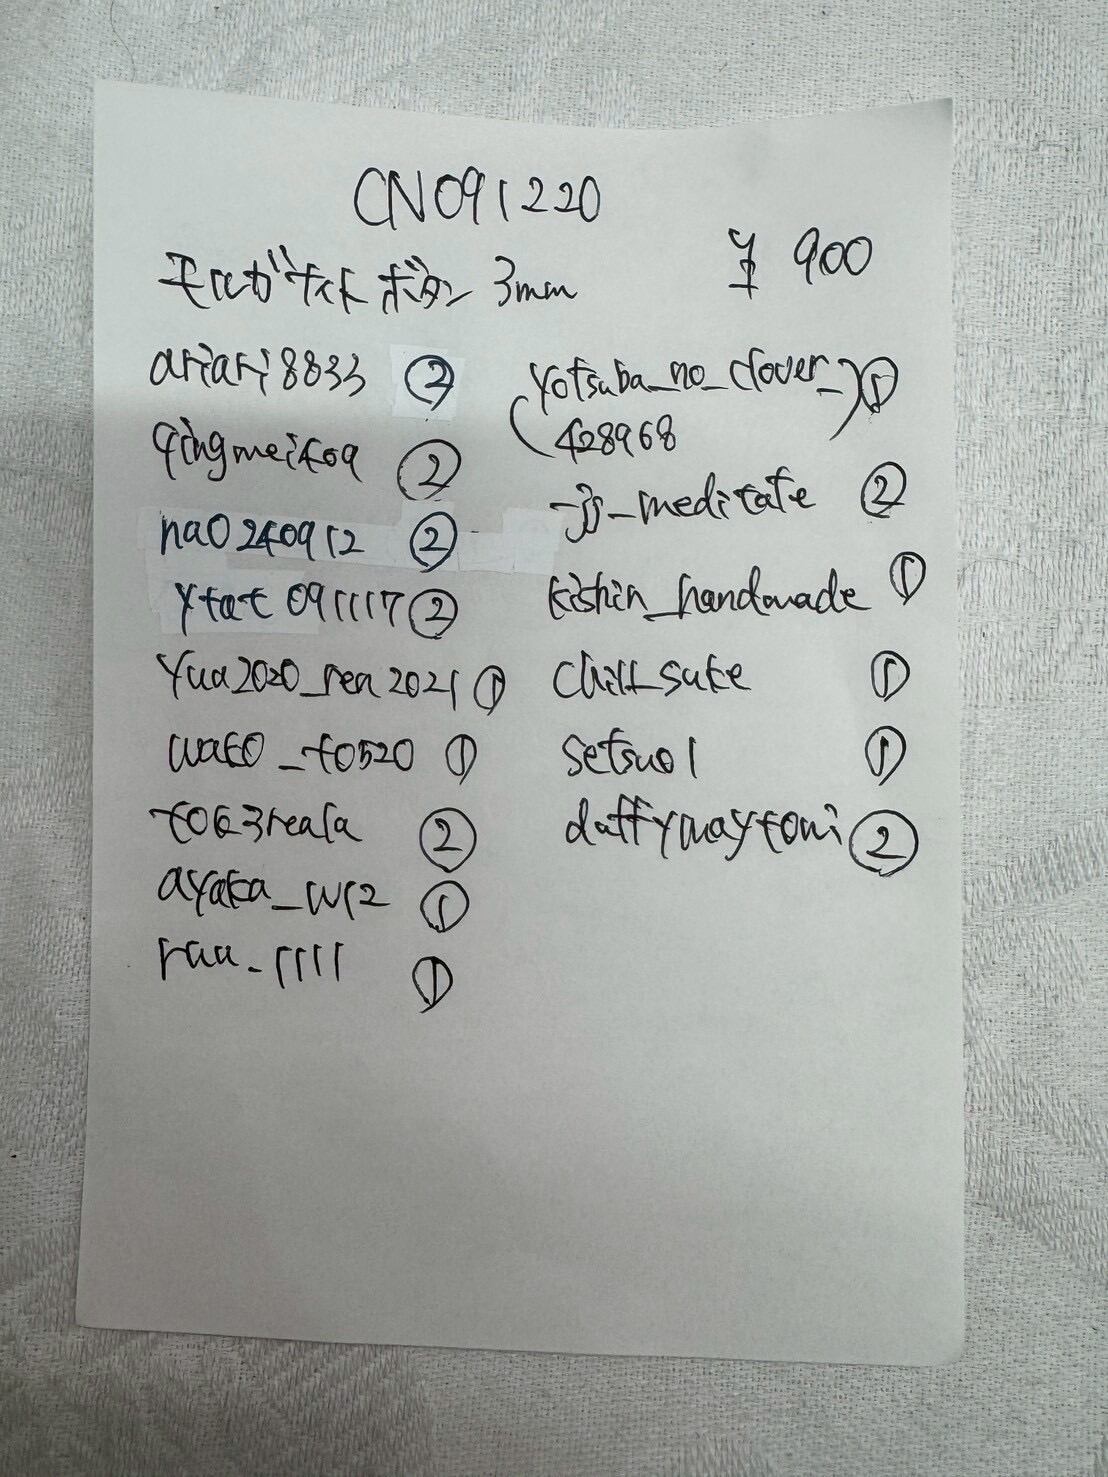 CN091220
モルガナイト ボタン 3mm ¥900
ariari8833 ②
qingmei409 ②
nao240912 ②
ytat091117 ②
yua2020_rea2021 ①
wato_t0520 ①
ayaka_w12 ①
raa_1111 ①
(yotsuba_no_clover_ ) ①
428968
_jj_meditate ②
kishin_handmade ①
①
setsuo1 ①
daffymaytomi ②